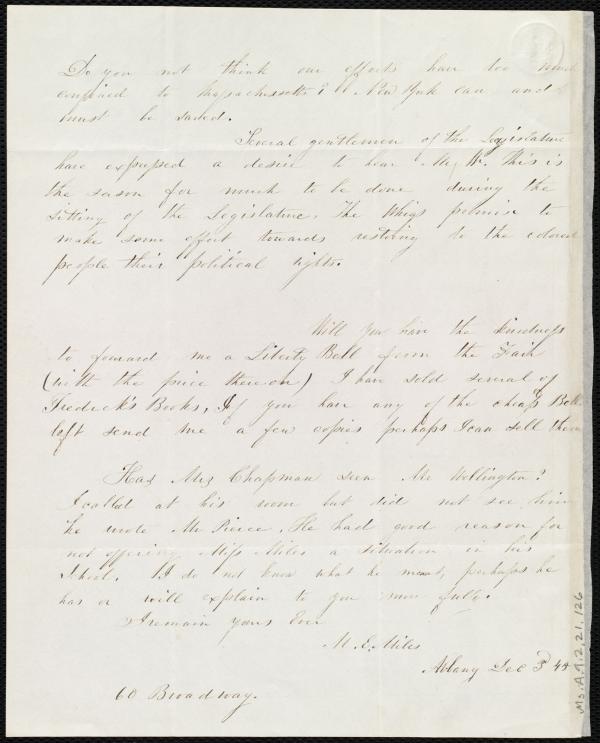 Do you not think our efforts have too much
confined to Massachusetts? New York can and
must be saved.
Several gentlemen of the Legislature
have expressed a desire to hear Mr W. This is
the season for much to be done during the
sitting of the Legislature. The Whigs promise to
make some effort towards restoring to the colored
people their political rights.
Will you have the kindness
to forward me a Liberty Bell from the Fair
(with the price thereon) I have sold several of
Fredrick's Books, If you have any of the cheap Bells
left send me a few copies perhaps I can sell them
Has Mrs Chapman seen Mr Wellington?
I called at his room but did not see him
he wrote Mr Pierce. He had good reason for
not offering Miss Miles a situation in his
School. I do not know what he meant, perhaps he
has or will explain to you more fully.
I remain yours Ever
M. E. Miles
Albany Dec 3
60 Broadway.
Ms. A. 9. 2. 21, 126